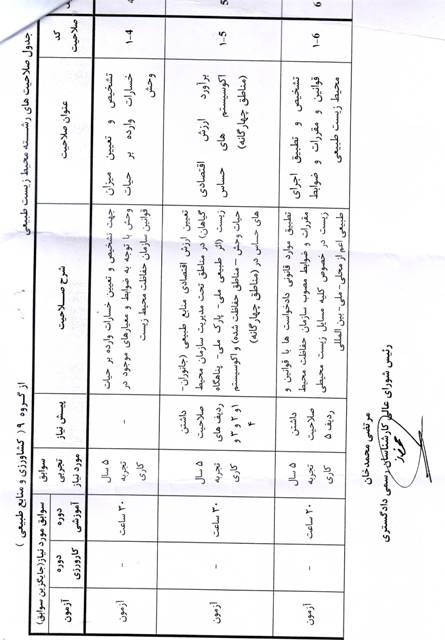 جدول صلاحیت های رشته محیط زیست طبیعی از گروه ۹ ( کشاورزی و منابع طبیعی )
کد صلاحیت
عنوان صلاحیت
شرح صلاحیت
پیش نیاز
سوابق تجربی مورد نیاز
سوابق مورد نیاز(جایگزین سوابق)
دوره آموزشی
دوره کارورزی
آزمون
4
۱-۴
تشخیص و تعیین میزان
خسارات وارده بر حیات
وحش
جهت تشخیص و تعیین خسارات وارده بر حیات
وحش با توجه به ضوابط و معیارهای موجود در
قوانین سازمان حفاظت محیط زیست
-
۵ سال
تجربه
کاری
۳۰ ساعت
-
آزمون
5
۱-۵
برآورد ارزش اقتصادی
اکوسیستم های حساس
(مناطق چهارگانه)
تعیین ارزش اقتصادی منابع طبیعی (جانوران-
گیاهان) در مناطق تحت مدیریت سازمان محیط
زیست (اثر طبیعی ملی- پارک ملی- پناهگاه
حیات وحش – مناطق حفاظت شده) و اکوسیستم
های حساس در (مناطق چهارگانه)
داشتن
صلاحیت
ردیف های
۱و ۲ و ۳ و
۴
۵ سال
تجربه
کاری
۳۰ ساعت
-
آزمون
6
۱-۶
تشخیص و تطبیق اجرای
قوانین و مقررات و ضوابط
محیط زیست طبیعی
تطبیق موارد قانونی دادخواست ها با قوانین و
مقررات و ضوابط مصوب سازمان حفاظت محیط
زیست در خصوص کلیه مسایل زیست محیطی
طبیعی اعم از محلی- ملی- بین المللی
داشتن
صلاحیت
ردیف ۵
۵ سال
تجربه
کاری
۲۰ ساعت
-
آزمون
مرتضی محمدخان
رئیس شورای عالی کارشناسان رسمی دادگستری